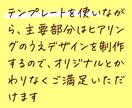 テンプレートを使いなが
ら、主要部分はヒアリン
グのうえデザインを制作
するので、オリジナルとか
わりなくご満足いただ
けます